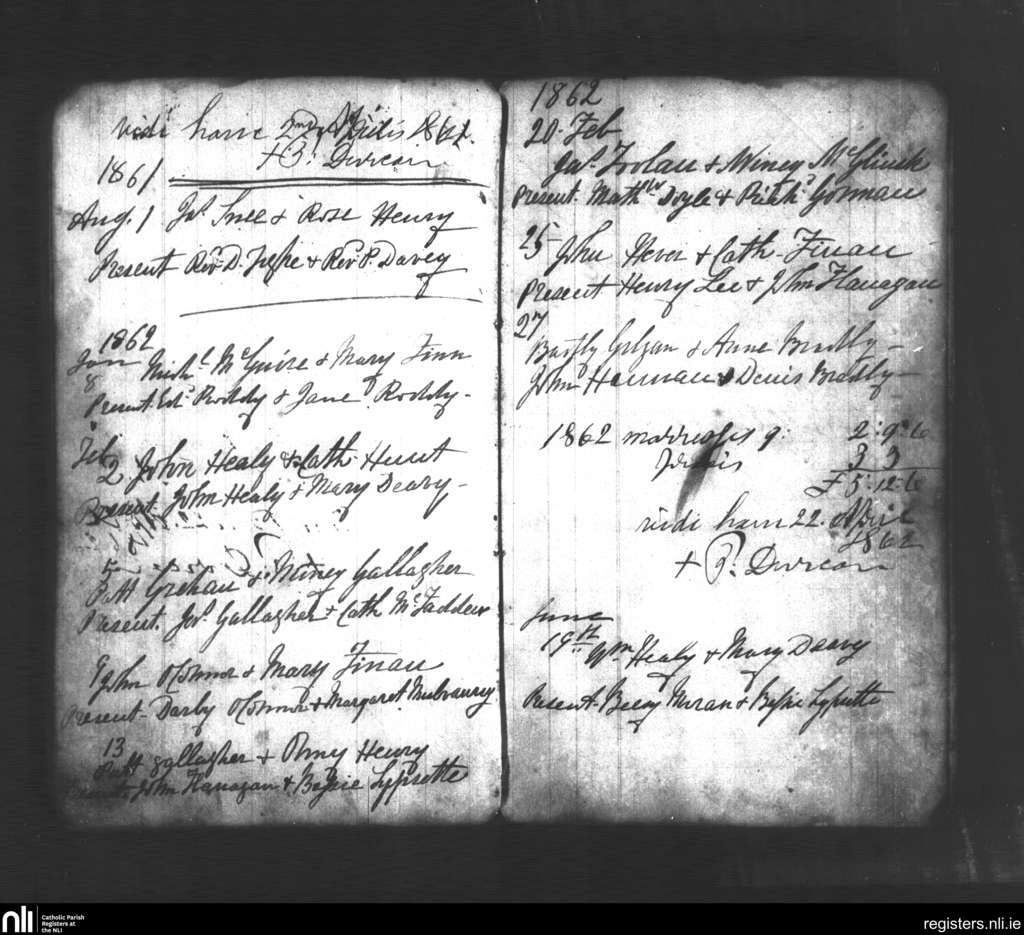 vidi hanc 2nd Aprilis 1861.
+ P. Durcan
1861
Aug. 1 Jas. Snee & Rose Henry
Present Revd. D. & Revd. P. Davey
1862
Jan
8 Michl. McGuire & Mary Finn
Present. Ed. Roddy & Jane Roddy-
Feb
2 John Healy & Cath. Hunt
Present. John Healy & Mary Deavy-
5
Patt Grehan & Winey Gallagher
Present. Gallagher & Cath McFadden
9 John O'Connor & Mary Finan
Present- Darby O'Connor & Margaret
13
Patt Gallagher & Henry
John Flanagan & Bessie Lypsette
1862
20 Feb
Jas. Foolan & Winey
Present. Mathw. Doyle & Gorman
25
John Hever & Cath. Finan
Present Henry Lee & John Flanagan
27
& Anne Bradly-
John & Denis Bradly-
1862 2:9:6
3 3
£5:12:6
vidi hanc 22. April
1862
+ P. Durcan
June
19th Wm. Healy & Mary Deavy
Present- & Bessie Lypsette
nli Catholic Parish
Registers at
the NLI
registers.nli.ie